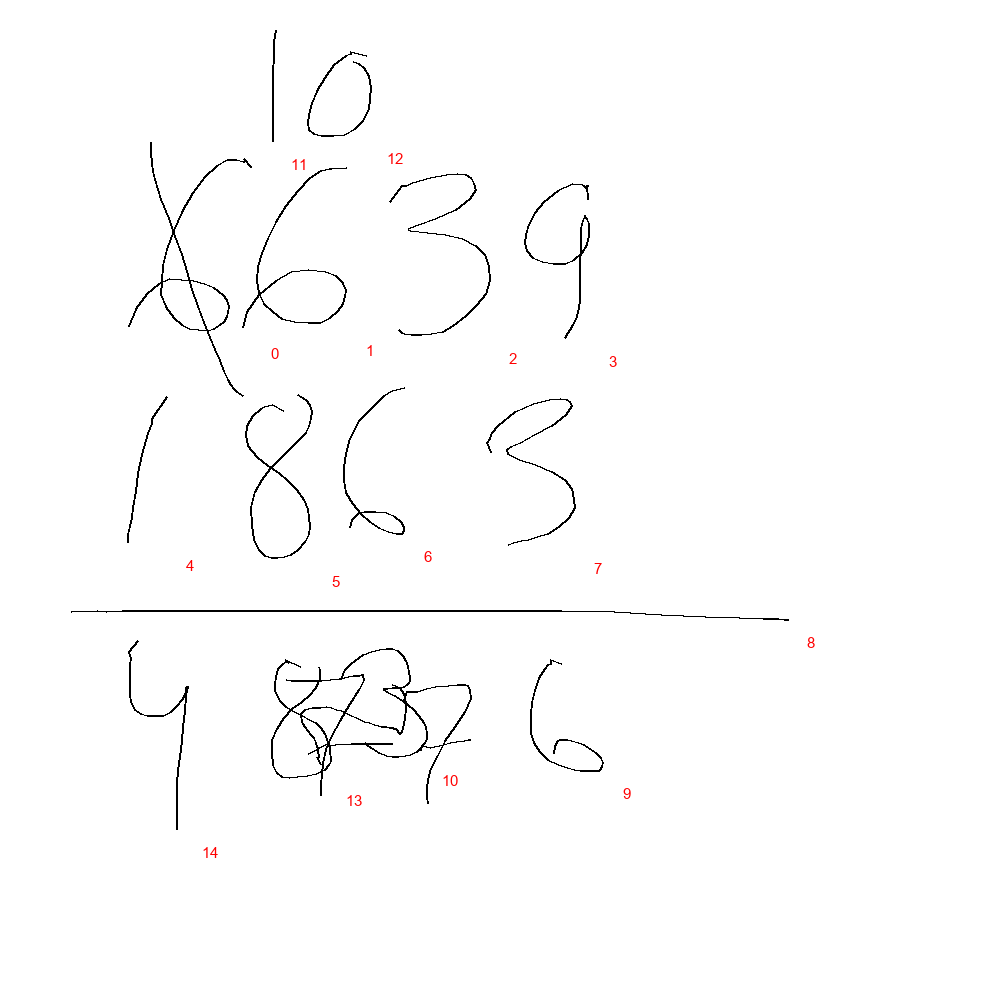 10
11 12
6639
0 1 2 3
1863
4 5 6 7
8
4776
14 13 10 9